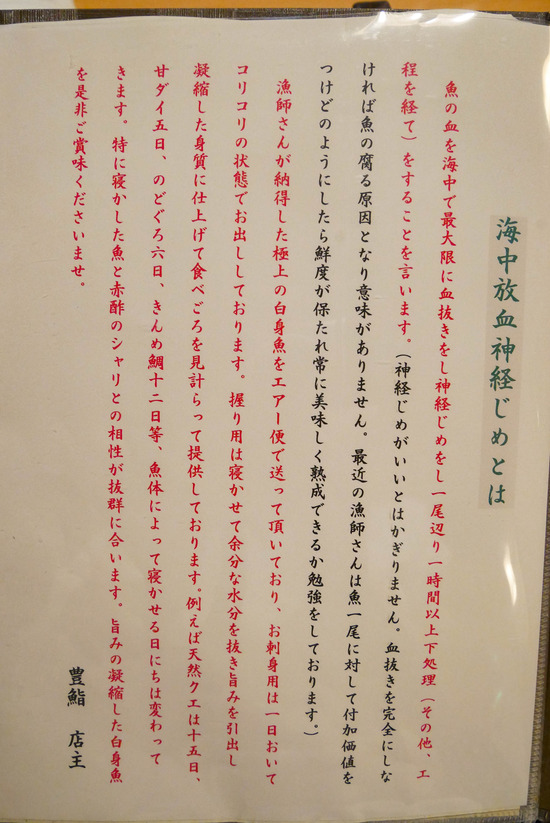 海中放血神経じめとは
魚の血を海中で最大限に血抜きをし神経じめをし一尾辺り一時間以上下処理（その他、工
程を経て）をすることを言います。（神経じめがいいとはかぎりません。血抜きを完全にしな
ければ魚の腐る原因となり意味がありません。最近の漁師さんは魚一尾に対して付加価値を
つけどのようにしたら鮮度が保たれ常に美味しく熟成できるか勉強をしております。）
漁師さんが納得した極上の白身魚をエアー便で送って頂いており、お刺身用は一日おいて
コリコリの状態でお出ししております。握り用は寝かせて余分な水分を抜き旨みを引出し
凝縮した身質に仕上げて食べごろを見計らって提供しております。例えば天然クエは十五日、
甘ダイ五日、のどぐろ六日、きんめ鯛十二日等、魚体によって寝かせる日にちは変わって
きます。特に寝かした魚と赤酢のシャリとの相性が抜群に合います。旨みの凝縮した白身魚
を是非ご賞味くださいませ。
豊鮨 店主